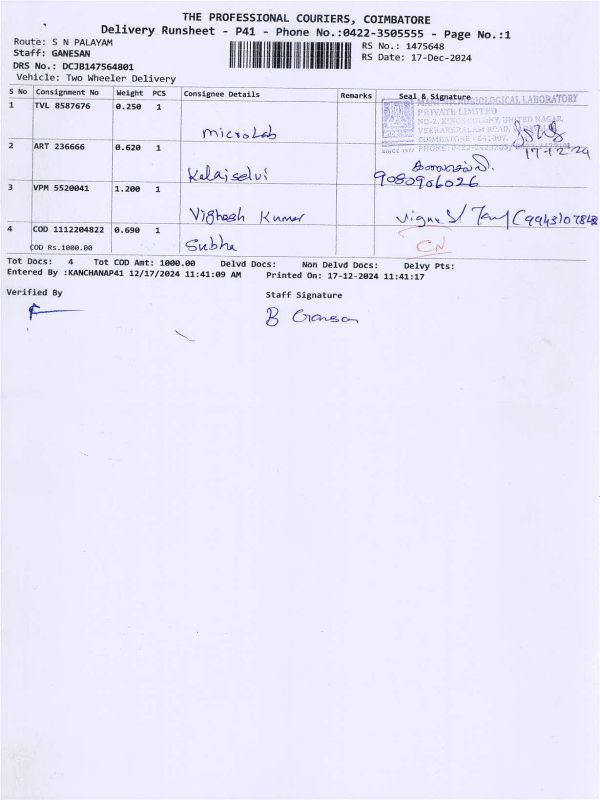 THE PROFESSIONAL COURIERS, COIMBATORE
Delivery Runsheet - P41 - Phone No.:0422-3505555 - Page No.:1
Route: S N PALAYAM
RS No.: 1475648
Staff: GANESAN
RS Date: 17-Dec-2024
DRS No.: DCJB147564801
Vehicle: Two Wheeler Delivery
S No Consignment No Weight PCS Consignee Details Remarks Seal & Signature
MICROBIOLOGICAL LABORATORY
PRIVATE LIMITED
1 TVL 8587676 0.250 1
NO-2, KINGS COLONY, UNITED NAGAR,
VEERAKERALAM ROAD,
COIMBATORE - 641007.
microLab
SINCE 1977
17-12-24
2 ART 236666 0.620 1
கலைசெல்வி.
Kalaiselvi
9080906026
3 VPM 5520041 1.200 1
Vighesh Kumar
4 COD 1112204822 0.690 1
Subha
CN
COD Rs.1000.00
Tot Docs: 4 Tot COD Amt: 1000.00 Delvd Docs: Non Delvd Docs: Delvy Pts:
Entered By :KANCHANAP41 12/17/2024 11:41:09 AM Printed On: 17-12-2024 11:41:17
Verified By
Staff Signature